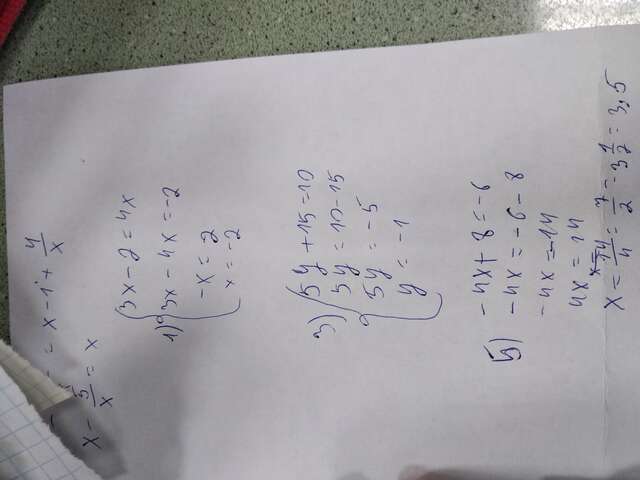 = x - 1 + 4/x
x - 3/x = x
3x - 2 = 4x
1) 3x - 4x = -2
-x = 2
x = -2
5y + 15 = 10
3) 5y = 10 - 15
5y = -5
y = -1
5) -4x + 8 = -6
-4x = -6 - 8
-4x = -14
4x = 14
x = 14/4 = 7/2 = 3 1/2 = 3,5